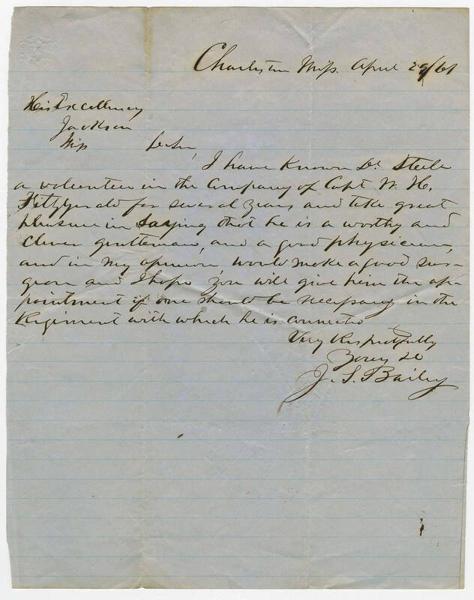 Charleston Miss. April 29/61
His Excellency
Jackson
Miss Dr Sir,
I have known Dr Steele
a volunteer in the Company of Capt W. H.
Fitzgerald for several years, and take great
pleasure in saying that he is a worthy and
clever gentleman, and a good physician,
and in my opinion would make a good sur-
geon and I hope you will give him the ap-
pointment if one should be necessary in the
Regiment with which he is connected
Very Respectfully
Yours &c
J. S. Bailey